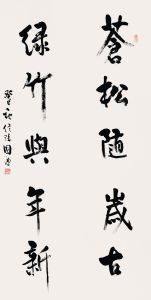 蒼松隨歲古
緑竹與年新
癸巳秋